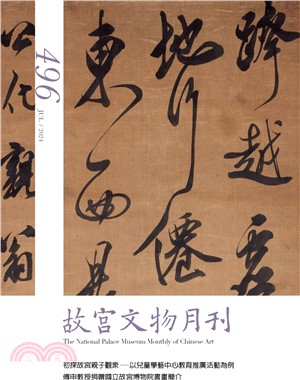 跨越
地行僊
東西
496
JUL / 2024
故宮文物月刊
The National Palace Museum Monthly of Chinese Art
初探故宮親子觀眾──以兒童學藝中心教育推廣活動為例
傅申教授捐贈國立故宮博物院書畫簡介